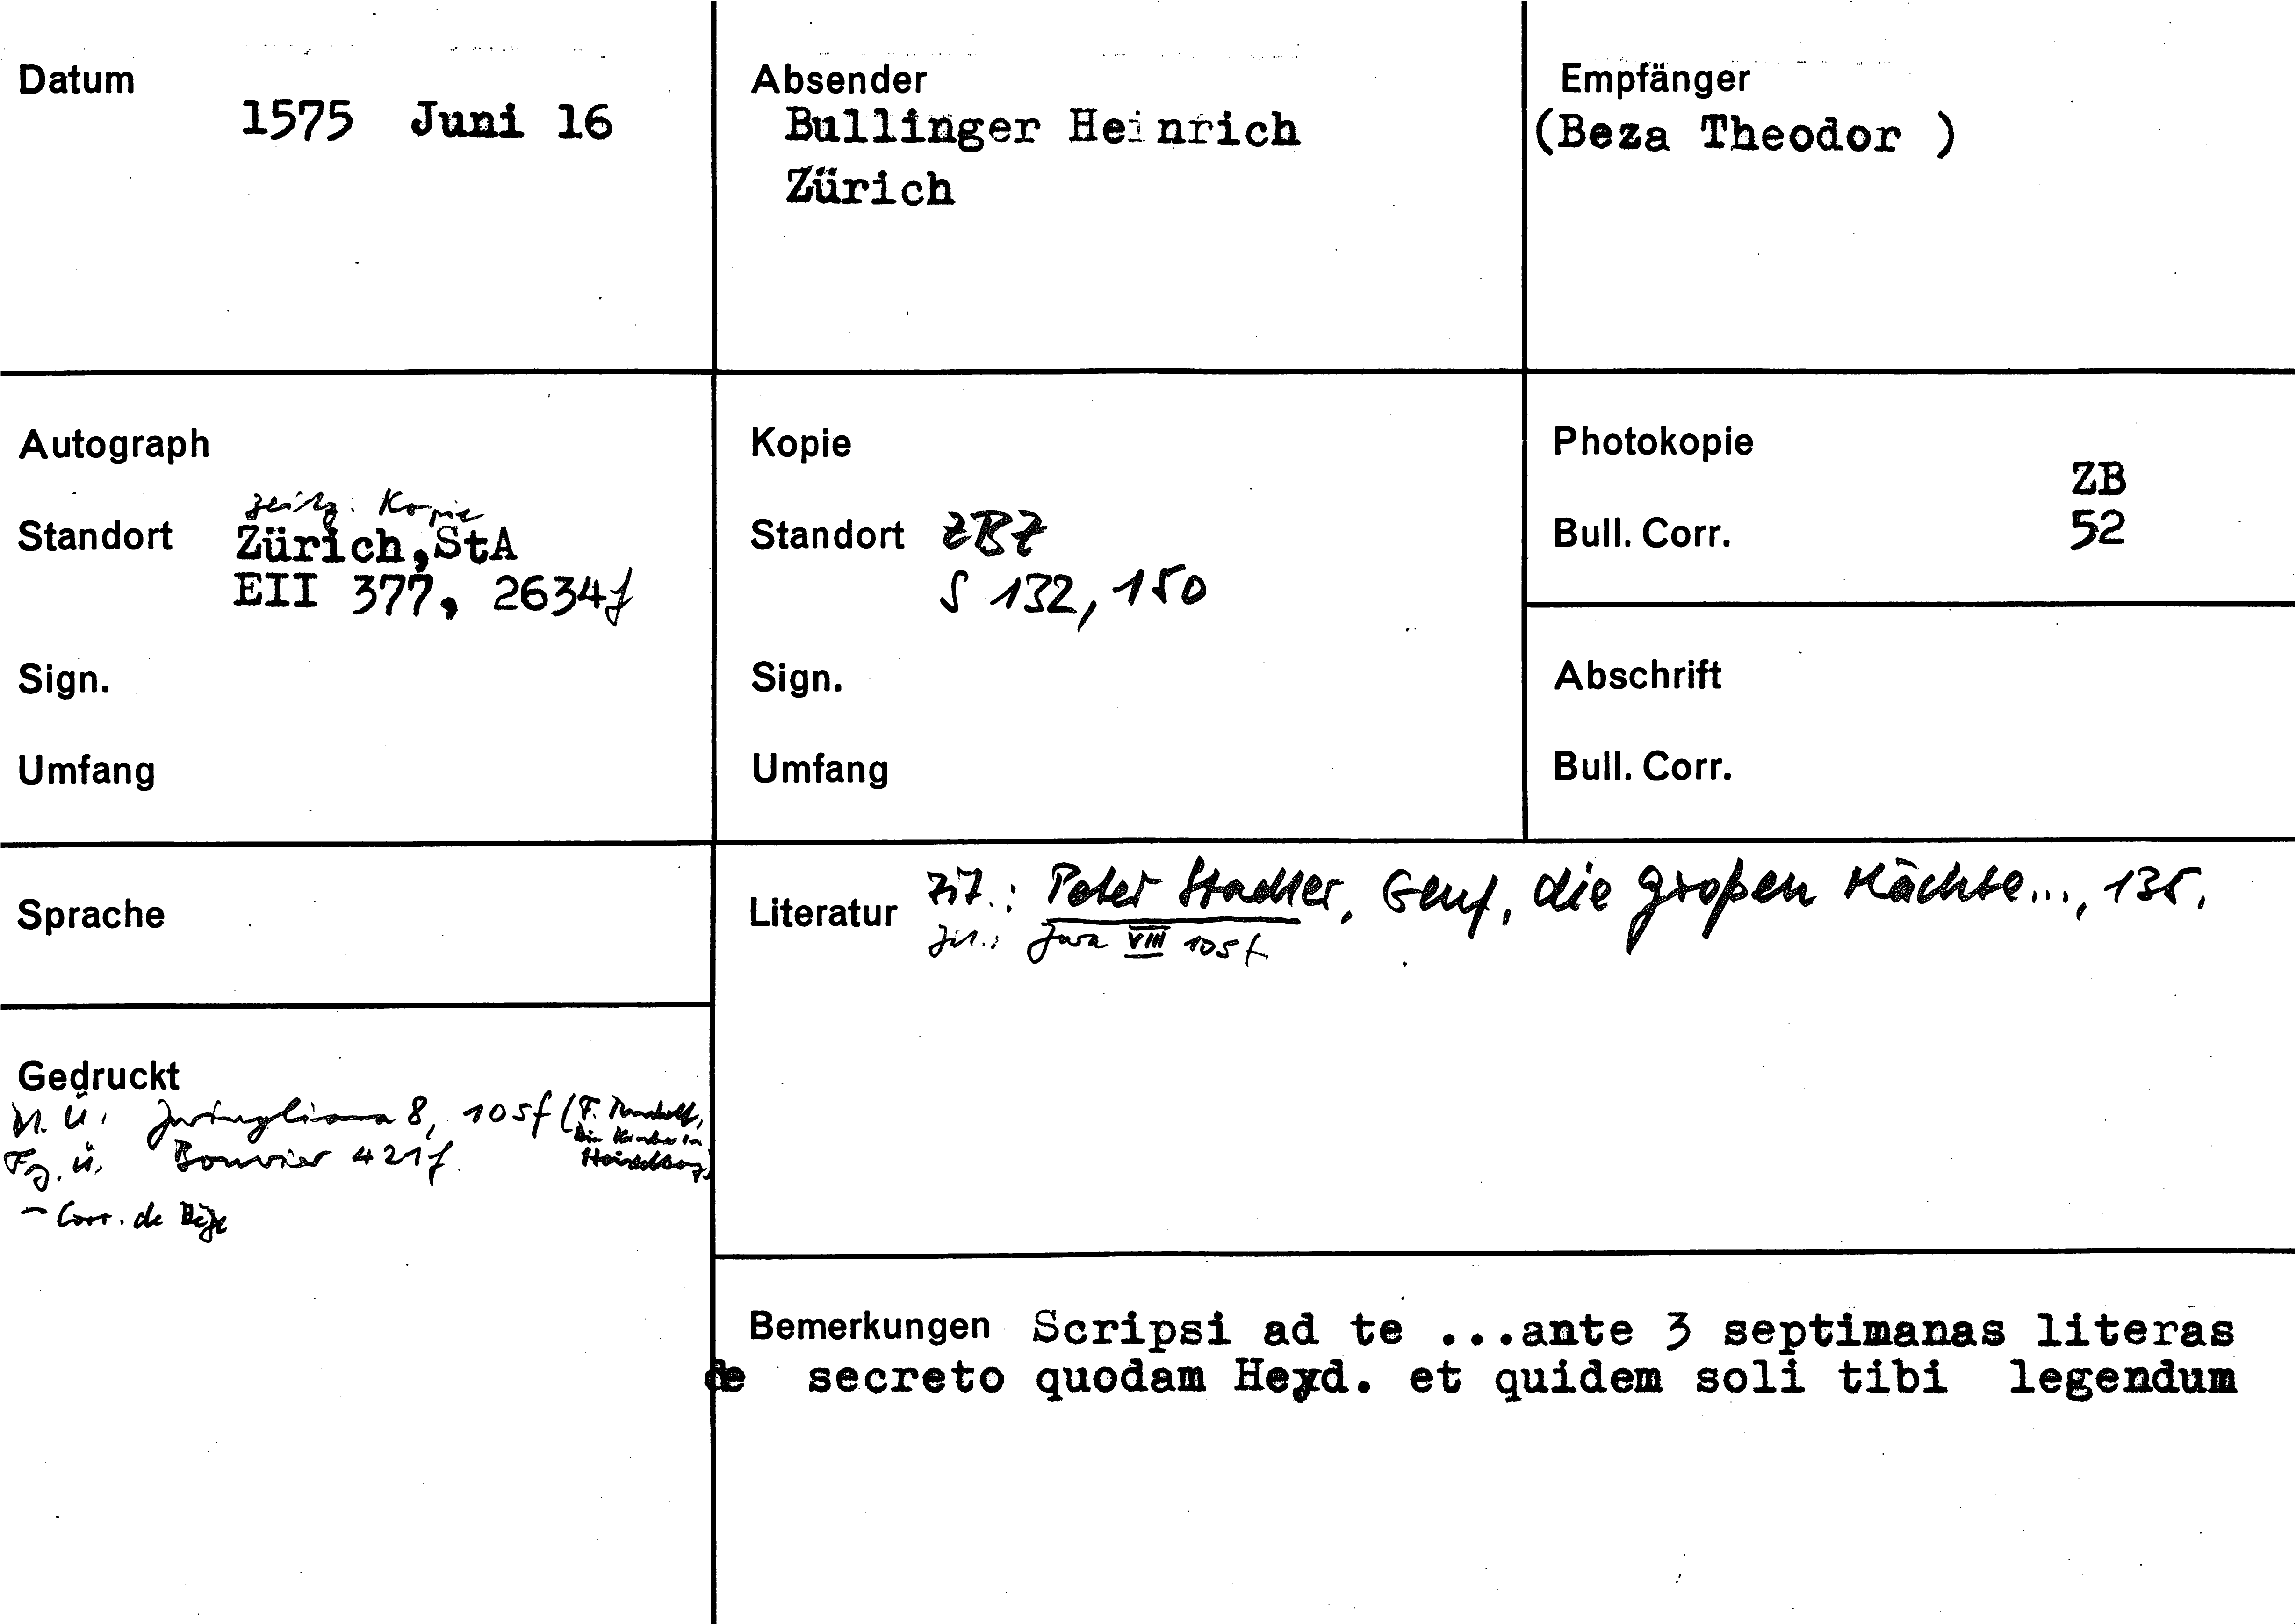 Datum
1575 Juni 16
Absender
Bullinger Heinrich
Zürich
Empfänger
(Beza Theodor )
Autograph
zeitg. Kopie
Standort Zürich,StA
EII 377, 2634f
Sign.
Umfang
Kopie
Standort ZBZ
S 132, 150
Sign.
Umfang
Photokopie
ZB
Bull. Corr. 52
Abschrift
Bull. Corr.
Sprache
Literatur Zit.: Peter Stadler, Genf, die großen Mächte..., 135.
Zit.: Zwa VIII 105f
Gedruckt
Ü. Zwingliana 8, 105f (F.
Die in
Fz. ü. Bouvier 421f. Heidelberg)
- Corr. de Bèze
Bemerkungen Scripsi ad te ...ante 3 septimanas literas
de secreto quodam Heyd. et quidem soli tibi legendum